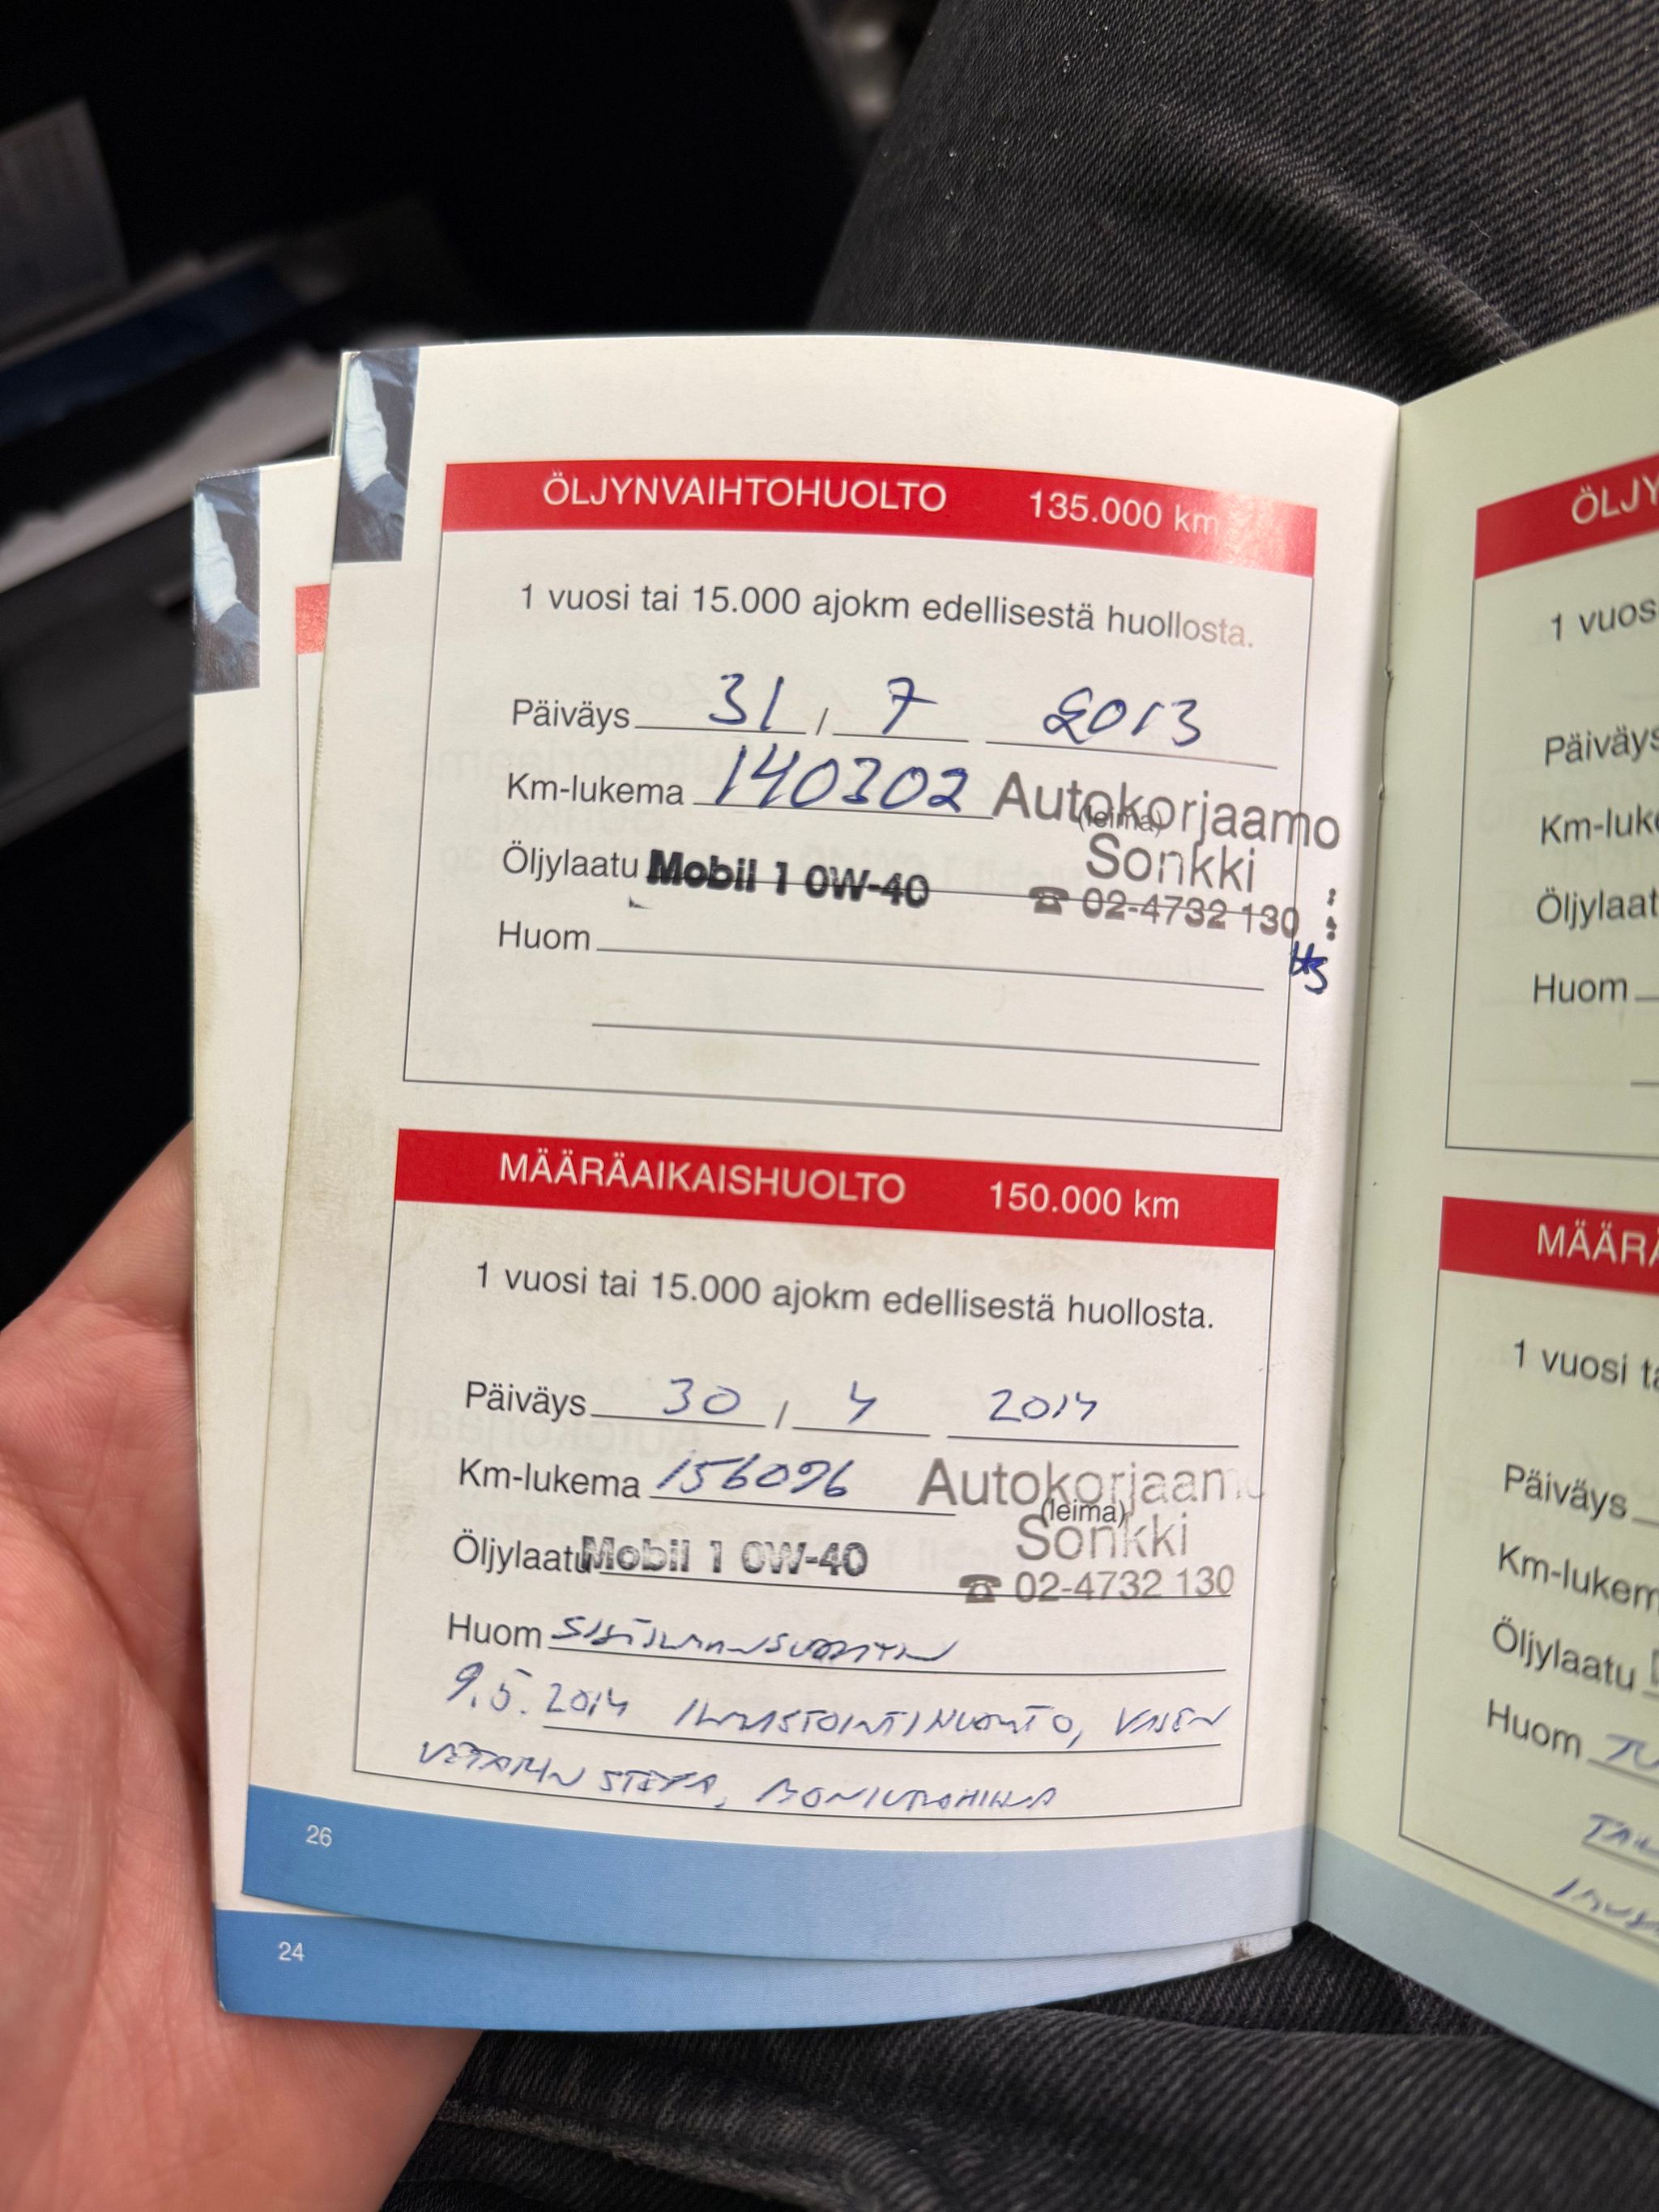 ÖLJYNVAIHTOHUOLTO 135.000 km
1 vuosi tai 15.000 ajokm edellisestä huollosta.
Päiväys 31 / 7 2013
Km-lukema 140302
(leima)
Autokorjaamo
Sonkki
☎ 02-4732 130
Öljylaatu Mobil 1 0W-40
Huom
MÄÄRÄAIKAISHUOLTO 150.000 km
1 vuosi tai 15.000 ajokm edellisestä huollosta.
Päiväys 30 / 4 2014
Km-lukema 156096
(leima)
Autokorjaamo
Sonkki
☎ 02-4732 130
Öljylaatu Mobil 1 0W-40
Huom SISÄILMANSUODATIN
9.5.2014 ILMASTOINTIHUOLTO, VASEN
VETARIN STEFA, MONIURAHIHNA
26
24
ÖLJY
1 vuos
Päiväys
Km-luke
Öljylaat
Huom
MÄÄRÄ
1 vuosi ta
Päiväys
Km-lukem
Öljylaatu
Huom